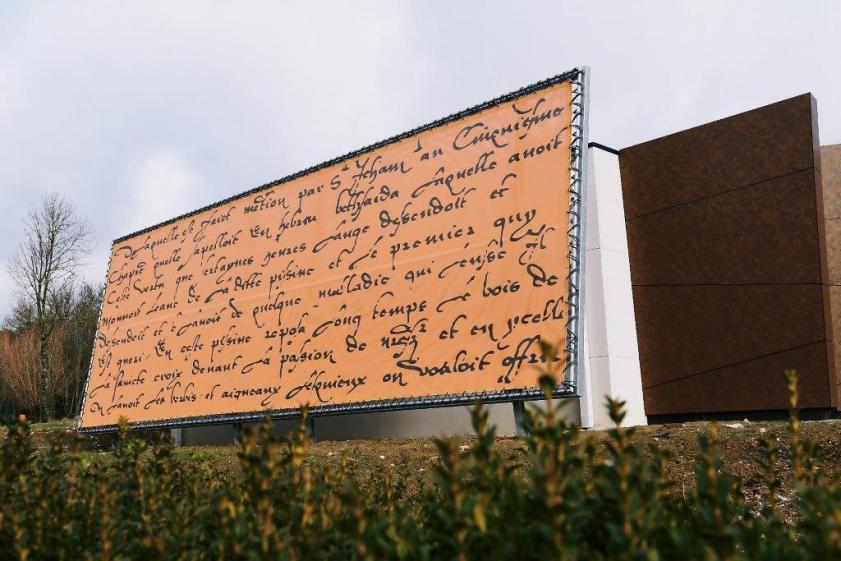 De laquelle est faict mention par St Jehan au Cinquiesme
Chapitre quelle sapelloit En hebreu bethsaida laquelle avoit
Ceste vertu que certaynes heures Lange descendoit et
mouvoit Leaue de La ditte piscine et Le premier quy
descendoit et Lavoit de quelque maladie qui feusse il
En ceste piscine reposa Long temps Le bois de
La saincte croix devant La pasion de et en icelle
on Lavoit Les brebis et aigneaux Lesquieux on Vouloit offrir